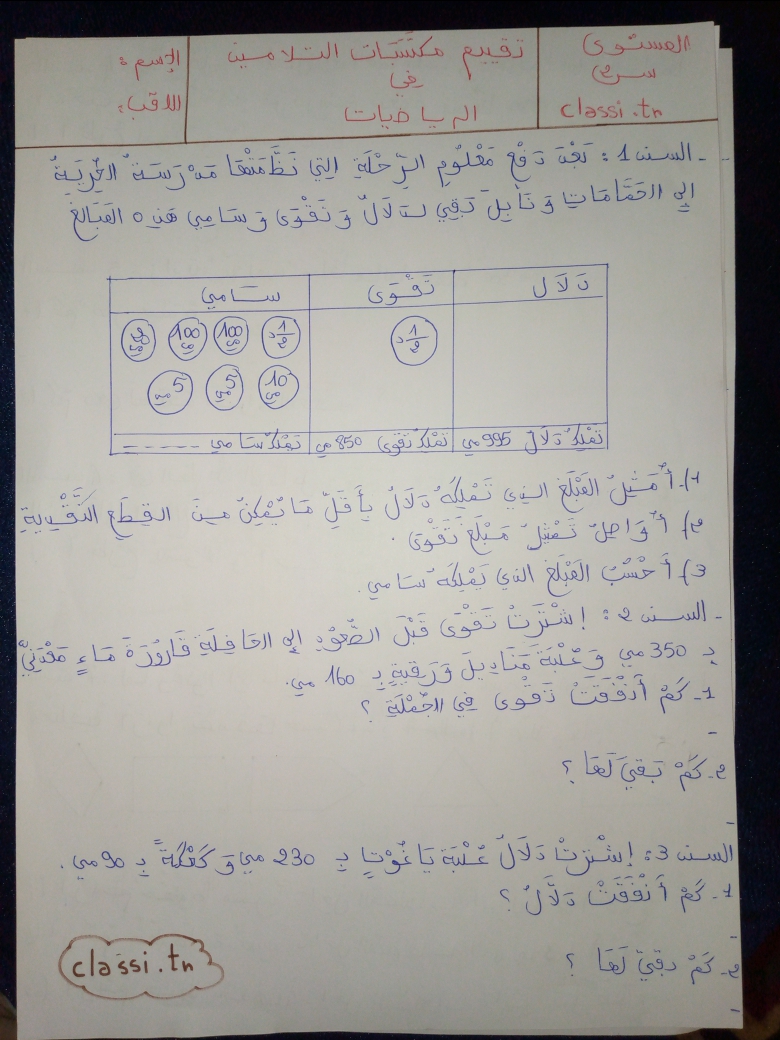 المستوى
س2
classi.tn
تقييم مكتسبات التلاميذ
في
الرياضيات
الإسم:
اللاقب:
- السند 1: بَعْدَ دَفْعِ مَعْلُومِ الرِّحْلَةِ التِي نَظَّمَتْهَا مَدْرَسَةُ
إلى الحَمَّامَاتِ وَنَابِلَ بَقِيَ لِدَلَالٌ وَتَقْوَى وَسَامِي هَذِه المَبَالغَ
دَلَال
تَقْوَى
سَامي
1/2 د
1/2 د
100 مي
100 مي
10 مي
5 مي
5 مي
تَمْلِكُ دَلَالُ 995 مي
تَمْلِكُ تَقْوَى 850 مي
تَمْلِكُ سَامي ------
1)- أُمَثِّلُ المَبْلَغَ الذِي تَمْلِكُهُ دَلَالُ بِأَقَلِّ مَا يُمْكِنُ مِنَ القِطَعِ النَّقْدِيةِ
2)- أُوَاصِلُ تَمْثِيلَ مَبْلَغَ تَقْوَى.
3)- أَحْسُبُ المَبْلَغَ الذي يَمْلِكُه سَامي.
- السند 2: إشْتَرَتْ تَقْوَى قَبْلَ الصُّعُودِ إلى الحَافِلَةِ قَارُورَةَ مَاءٍ مَعْدَنِيٍّ
بِـ 350 مي وَعُلْبَةَ مَنَادِيلَ وَرَقِيةٍ بِـ 160 مي.
1- كَمْ أَنْفَقَتْ تَقْوى فِي الجُمْلَةِ ؟
-
2- كَمْ بَقِيَ لَهَا ؟
-
السند 3: إشْتَرَتْ دَلَالُ عُلْبَةَ يَاغُوتٍ بِـ 230 مي وَ كَعْكَةً بِـ 90 مي.
1- كَمْ أَنْفَقَتْ دَلَالُ ؟
-
2- كَمْ بقيَ لَهَا ؟
-
classi.tn